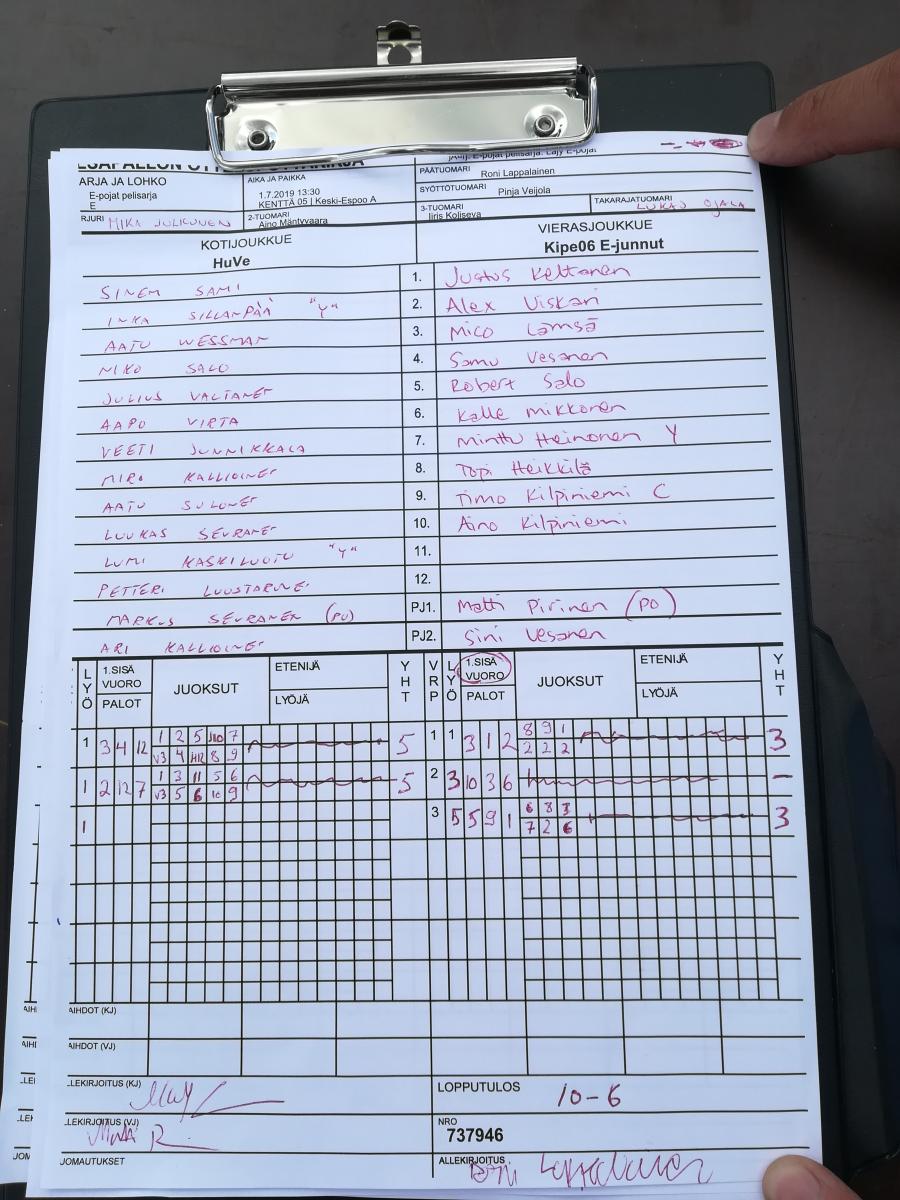 ARJA JA LOHKO
E-pojat pelisarja
E
AIKA JA PAIKKA
1.7.2019 13:30
KENTTÄ 05 | Keski-Espoo A
PÄÄTUOMARI Roni Lappalainen
SYÖTTÖTUOMARI Pinja Veijola
RJURI MIKA
2-TUOMARI
Aino Mäntyvaara
3-TUOMARI
Iiris Koliseva
TAKARAJATUOMARI
LUKAS OJALA
KOTIJOUKKUE
HuVe
VIERASJOUKKUE
Kipe06 E-junnut
SINEM SAMI 1. Justus Keltanen
INKA SILLANPÄÄ "Y" 2. Alex Viskari
AATU WESSMAN 3. Mico Lämsä
NIKO SALO 4. Samu Vesanen
JULIUS VALTANET 5. Robert Salo
AAPO VIRTA 6. Kalle Mikkonen
VEETI JUNNIKKALA 7. Minttu Heinonen Y
MIRO KALLIOINET 8. Topi Heikkilä
AATU SULONET 9. Timo Kilpiniemi C
LUUKAS SEURANET 10. Aino Kilpiniemi
LUMI KASKILUOTO "Y" 11.
PETTERI 12.
MARKUS SEURANEN (PJ) PJ1. Matti Pirinen (PO)
ARI KALLIOINET PJ2. Sini Vesanen
LYÖ 1.SISÄ VUORO PALOT JUOKSUT ETENIJÄ LYÖJÄ YHT VRP LYÖ 1.SISÄ VUORO PALOT JUOKSUT ETENIJÄ LYÖJÄ YHT
1 3 4 12 1 2 5 10 7 5 1 1 3 1 2 8 9 1 3
V3 4 8 9 2 2 2
1 2 12 7 1 3 11 5 6 5 2 3 10 3 6 –
V3 5 6 10 9
1 3 5 5 9 1 6 8 3 3
7 2 6
AIHDOT (KJ)
AIHDOT (VJ)
LEKIRJOITUS (KJ)
LOPPUTULOS 10-6
LEKIRJOITUS (VJ)
NRO
737946
JOMAUTUKSET
ALLEKIRJOITUS Roni Lappalainen